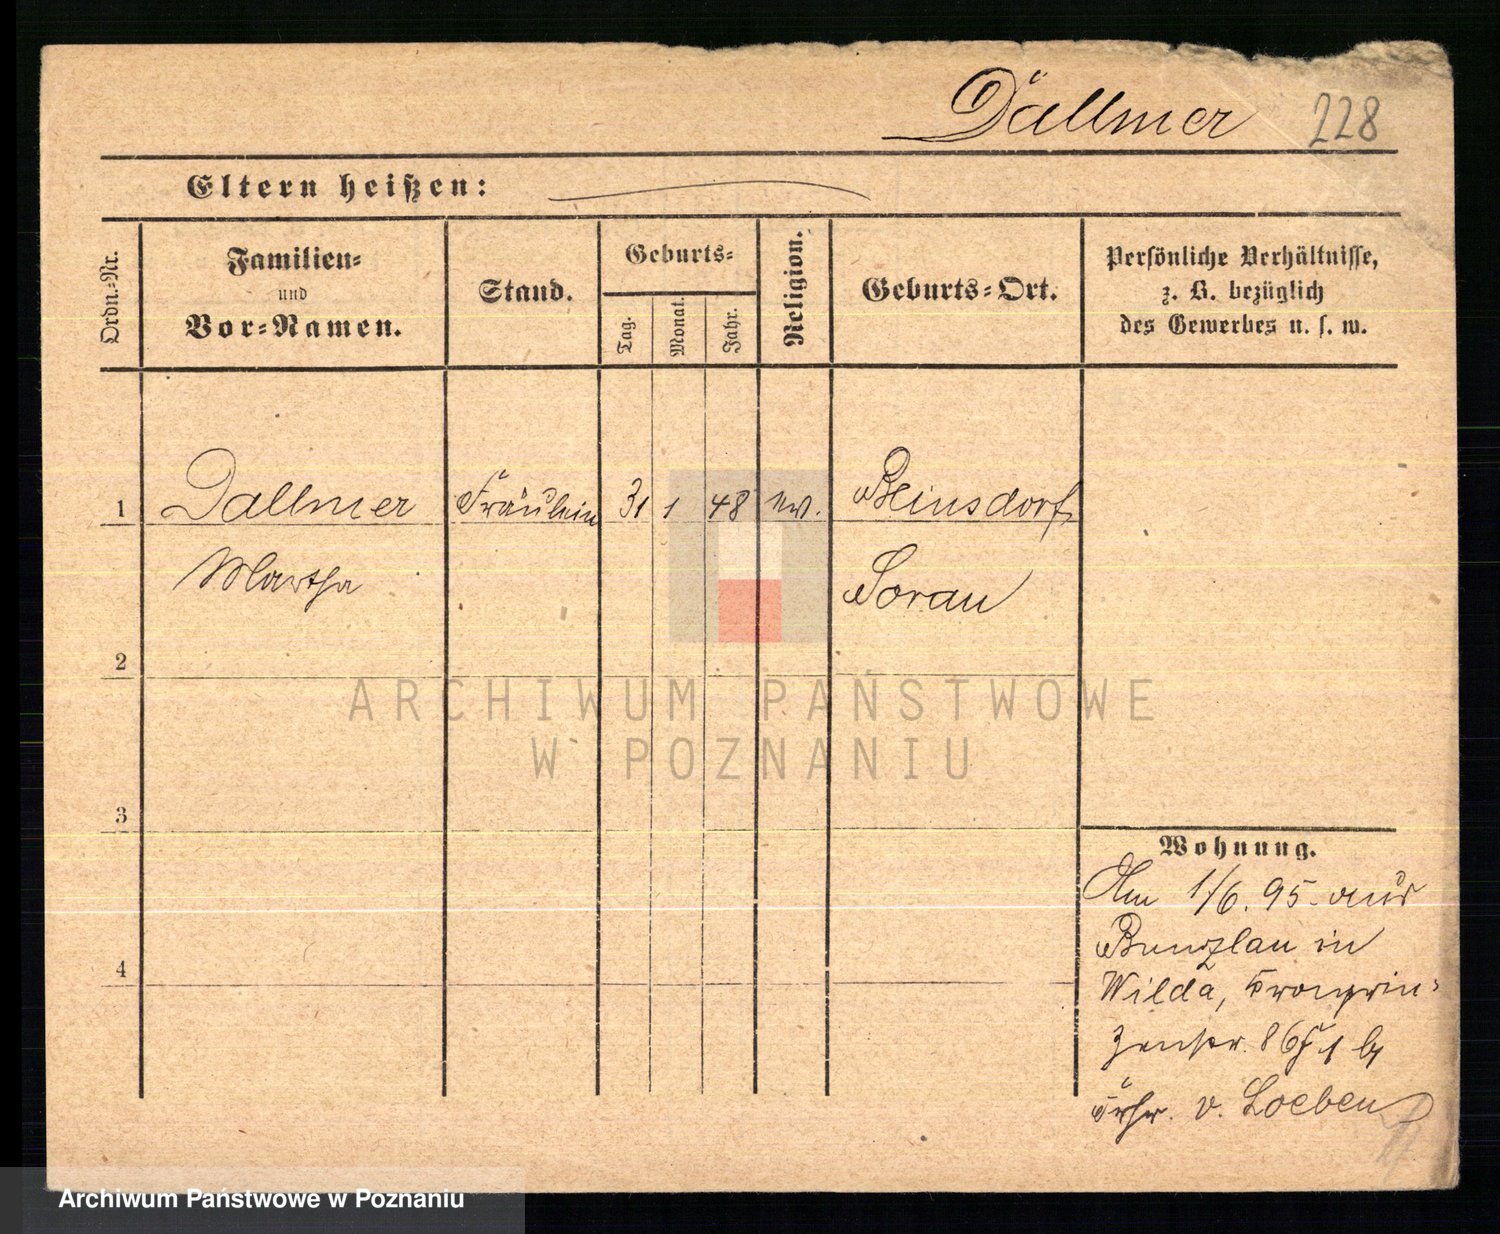 Dallmer 228
Eltern heißen:
Ordn.-Nr.
Familien-
und
Vor-Namen.
Stand.
Geburts-
Tag.
Monat.
Jahr.
Religion.
Geburts-Ort.
Persönliche Verhältnisse,
z. B. bezüglich
des Gewerbes u. s. w.
1 Dallmer Fräulein 31 1 48 ev. Beinsdorf
Martha Sorau
2
ARCHIWUM PAŃSTWOWE
W POZNANIU
3
Wohnung.
Am 1/6. 95. aus
Bunzlau in
Wilda, Kronprin-
zenstr. 86
4
Frhr. v. Loeben
Archiwum Państwowe w Poznaniu